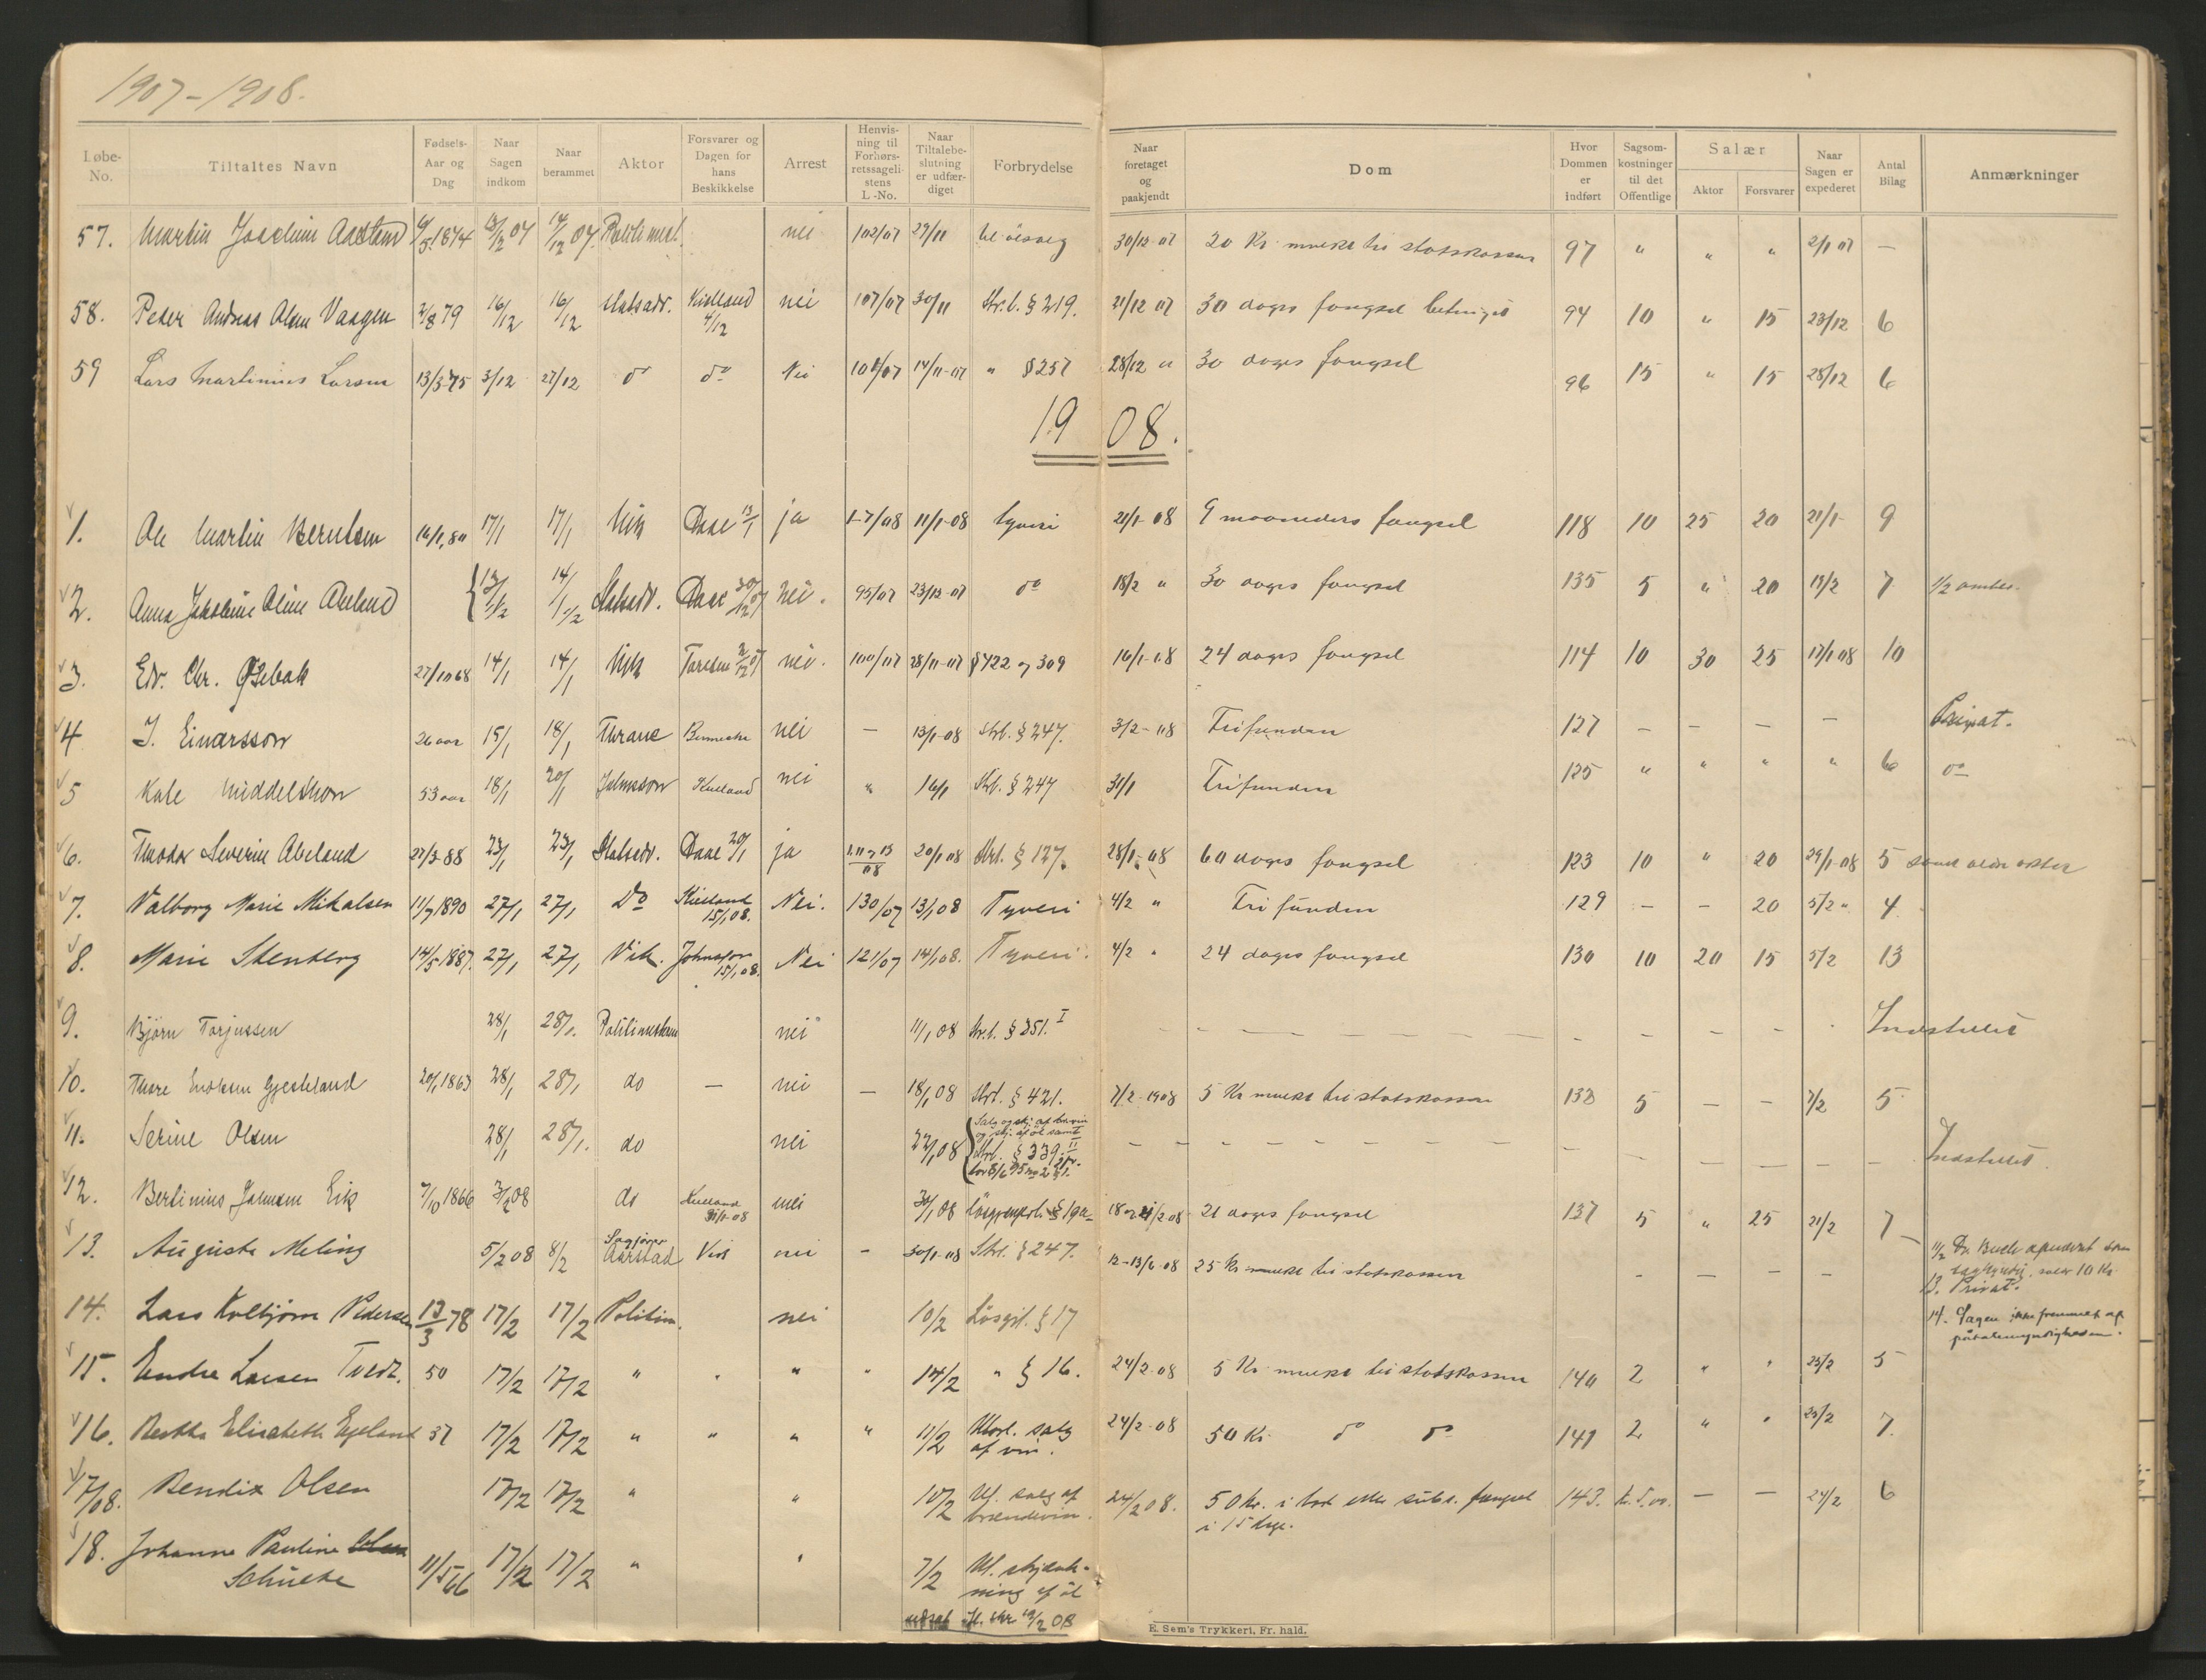 1907-1908.
Løbe-No. Tiltaltes Navn Fødsels-Aar og Dag Naar Sagen indkom Naar berammet Aktor Forsvarer og Dagen for hans Beskikkelse Arrest Henvisning til Forhørsretssagelistens L.-No. Naar Tiltalebeslutning er udfærdiget Forbrydelse Naar foretaget og paakjendt Dom Hvor Dommen er indført Sagsomkostninger til det Offentlige Salær Aktor Forsvarer Naar Sagen er expederet Antal Bilag Anmærkninger
57. Martin Joachim Aastend /5 1874 13/12 07 14/12 07 Politimest. nei 102/07 27/11 30/12 07 20 Kr mulkt til statskassen 97 " " " 2/1 07 —
58. Peder Andreas Olsen Vaagen 2/8 79 16/12 16/12 Statsadv. Kielland 4/12 nei 107/07 30/11 Str.l. § 219. 21/12 07 30 dages fængsel betinget 94 10 " 15 23/12 6
59 Lars Martinius Larsen 13/3 75 3/12 27/12 do do Nei 108/07 14/11-07 " § 257 28/12 " 30 dages fængsel 96 15 " 15 28/12 6
1908.
1. Ole Martin Berntsen 16/1,80 17/1 17/1 Vik Daae 13/1 ja 1-7/08 11/1-08 tyveri 21/1-08 9 maaneders fængsel 118 10 25 20 21/1- 9
2. Anna Jakobine Oline Aaeland 13/1 1/2 14/1 1/2 Statsadv. Daae 30/12 07 nei. 95/07 23/12-07 do 18/2 " 30 dages fængsel 135 5 " 20 19/2 7 1/2 ombes.
3. Edv. Chr. Øsebak 27/10 68 14/1 14/1 Vik Torsten 2/12 07 nei. 100/07 28/11-07 § 422 og 309 16/1-08 24 dages fængsel 114 10 30 25 17/1 08 10
4 J. Einarsson 26 aar 15/1 18/1 Thrane Bennetter nei — 13/1-08 Strl. § 247. 3/2-08 Frifunden 127 — — — — Privat.
5 Kale Middelthon 53 aar 18/1 20/1 Johnsson Kielland nei " 16/1 Strl. § 247 31/1 Frifunden 125 " " " " 6 do
6. Theodor Severin Abeland 27/3 88 23/1 23/1 Statsadv. Daae 20/1 ja 1,11 og 13/08 20/1 08 Strl. § 127. 28/1-08 60 dages fængsel 123 10 " 20 29/1-08 5 samt
7. Valborg Marie Mikalsen 11/7 1890 27/1 27/1 Do Kielland 15/1,08. Nei. 130/07 13/1,08 Tyveri 4/2 " Frifunden 129 — — 20 5/2 " 4
8. Marie Stenberg 14/5 1887. 27/1 27/1 Vik. Johnsson 15/1,08. Nei 121/07 14/1,08. Tyveri. 4/2 " 24 dages fængsel 130 10 20 15 5/2 13
9. Bjørn Torjussen 28/1 28/1. Politimesteren nei 11/1 08 Str.l. § 351. I — — — — — — Indstillet
10. Thore Endresen Gjesteland 20/1 1863 28/1 28/1 do — nei — 18/1,08 Strl. § 421. 7/2-1908 5 Kr mulkt til statskassen 132 5 — — 7/2 5
11. Serine Olsen 28/1 28/1. do nei 22/1,08 Salg og skj. af brvin
og skj. af öl samt
Strl. § 339. II — — — — — — Indstillet.
12. Bertinius Johnsen Eik 7/10 1866 3/2 08 do Kielland 31/1-08 nei 30/1 08 21/2-08 21 dages fængsel 137 5 " 25 21/2 7
13. Auguste Meling 5/2 08 8/2 Sagfører
Aarstad Vik nei - 30/1-08 Strl. § 247. 12-13/6-08 25 Kr mulkt til statskassen — — — — 11/2 Dr. Buch opnævnt som
sagkyndig, salær 10 Kr.
13. Privat.
14. Lars Kolbjørn Pedersen 13/3 78 17/2 17/2 Politim. nei 10/2 Løsgjl. § 17 14. Sagen ikke fremmet af
påtalemyndigheden.
15. Endre Larsen Tvedt. 50 17/2 17/2 " " " " 14/2 " § 16. 24/2-08 5 Kr mulkt til statskassen 140 2 " " 25/2 5
16. Bertha Elisabeth Egeland 37 17/2 17/2 " " " " 11/2 Ulovl. salg
af vin. 24/2-08 50 Kr do do 141 2 " " 25/2 7.
17/08. Bendix Olsen 17/2 17/2 " " 10/2 Ul. salg af
brændevin. 24/2 08. 50 kr. i bod eller subs. fængsel
i 15 dage. 143. kr. 5.00. — — 24/2 6
18. Johanne Pauline
Schulke 11/5 66 17/2 17/2 " " 7/2 Ul. skjænk-
ning af öl
19/2 08
E. Sem's Trykkeri, Fr. hald.